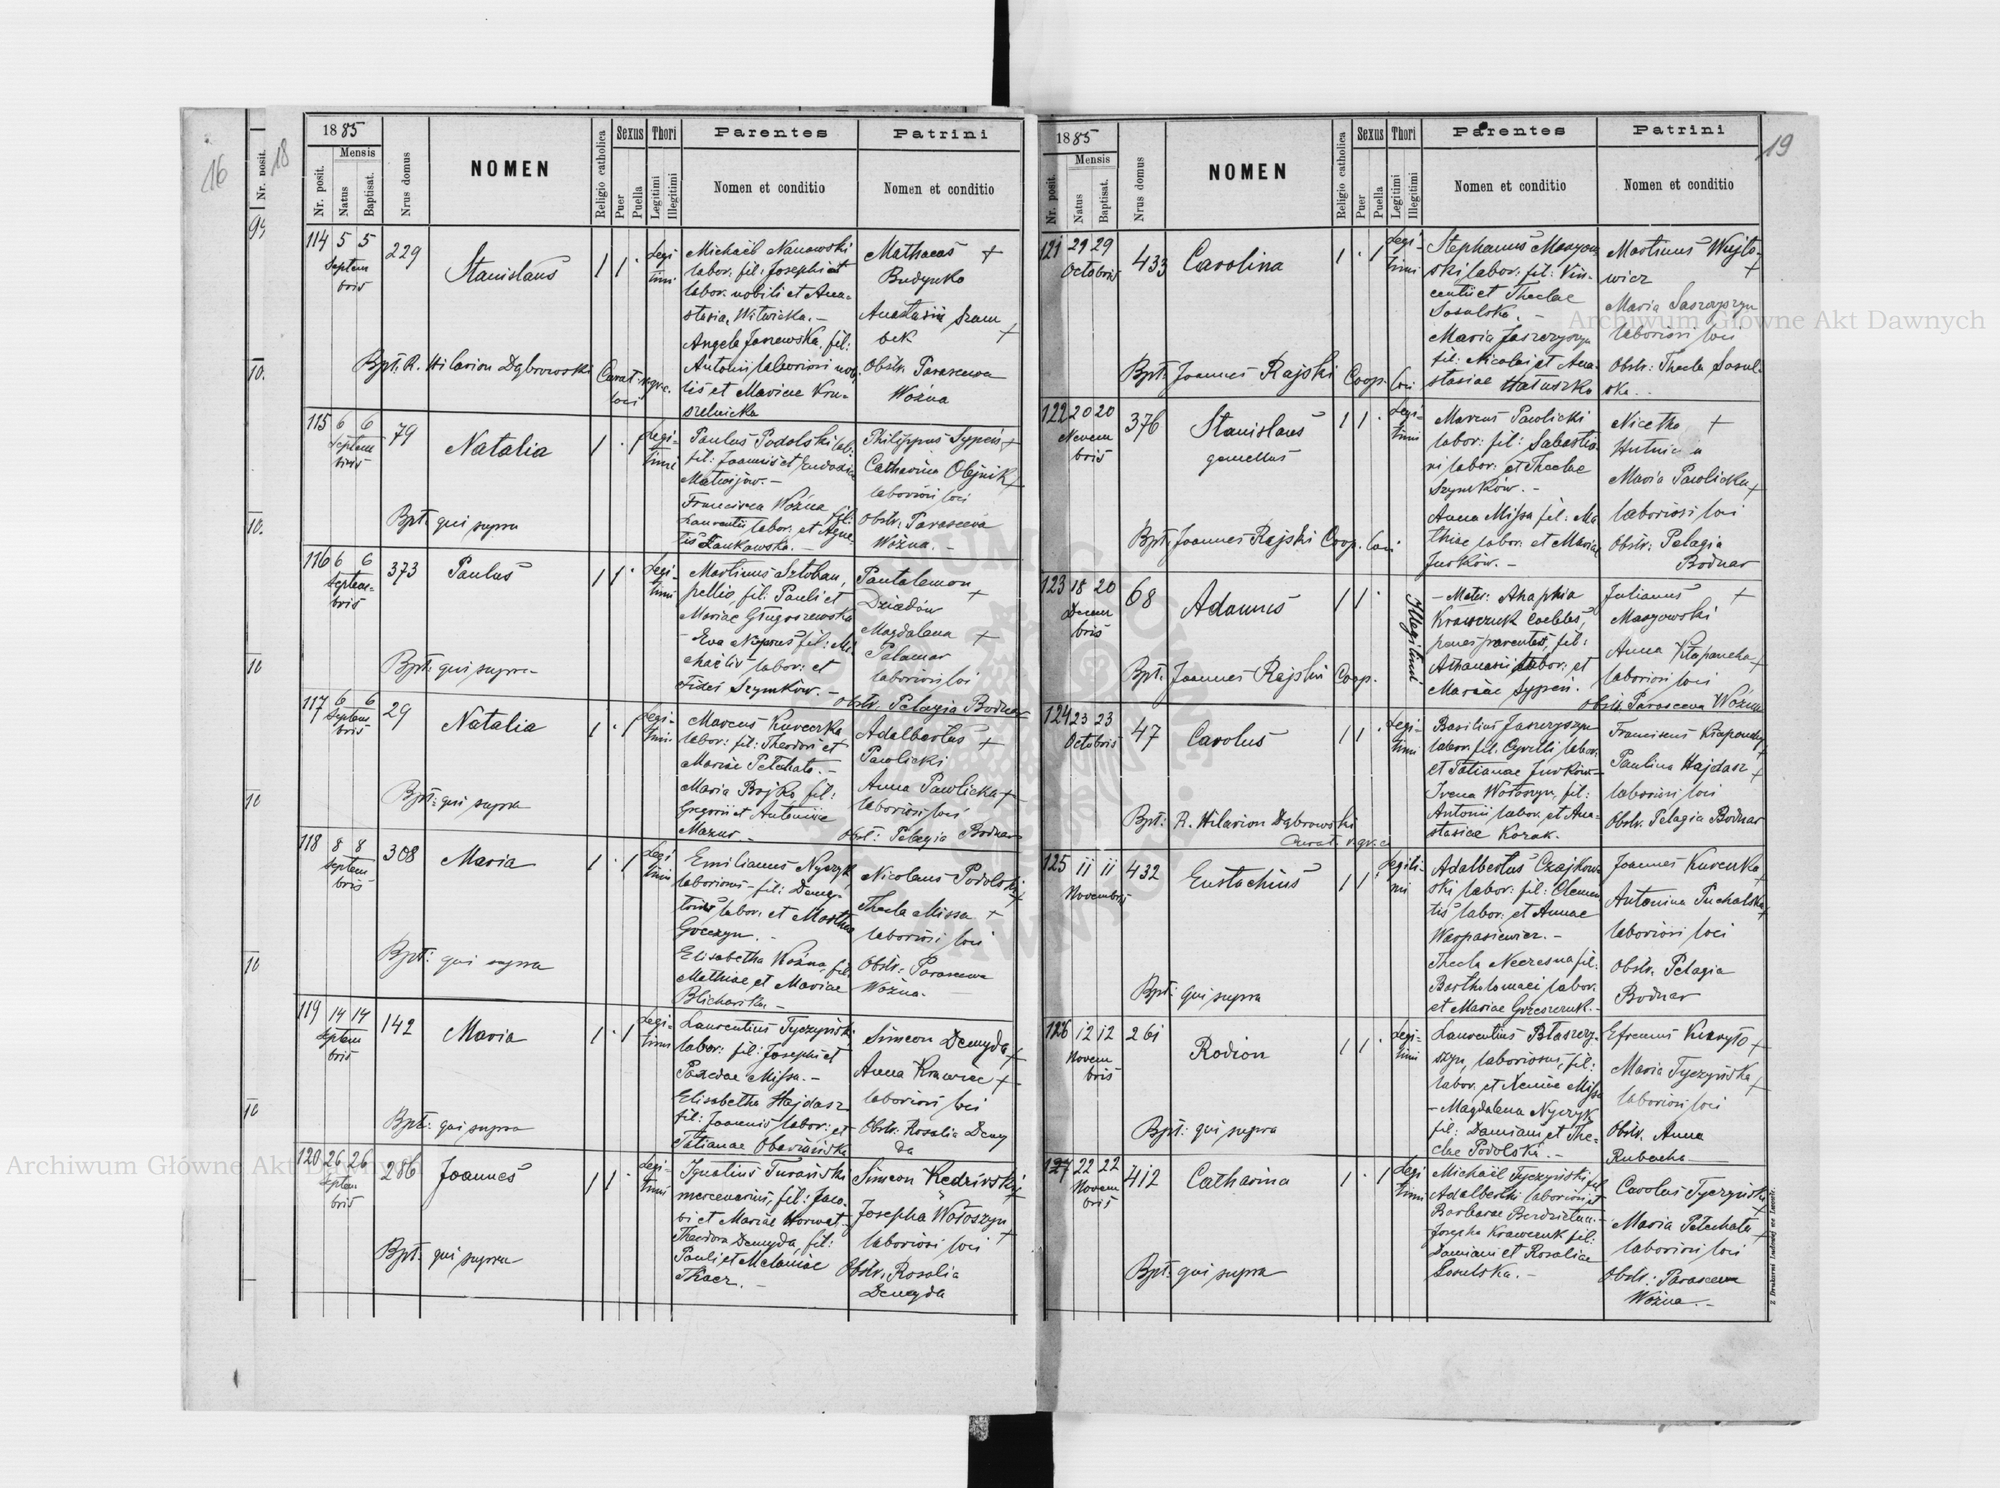 16
Nr. posit.
99
10.
10.
10
10
10
10
18
1885
Nr. posit.
Mensis
Natus
Baptisat.
Nrus domus
NOMEN
Religio catholica
Sexus
Puer
Puella
Thori
Legitimi
Illegitimi
Parentes
Nomen et conditio
Patrini
Nomen et conditio
114 5 5
Septem
bris
229
Stanislaus
1 1 ·
Legi
timi
Michaël Nanowski
labor: fil: Josephi et
labor. nobili et Ana-
stasia Witwicka. –
Angela Janewska, fil:
Antonii laboriosi nob:
lis et Mariae Kru-
szelnicka
Mathaeus +
Budynko
Anastasia Szam
bek +
Obstr. Parascewa
Woźna
Bpt. R. Hilarion Dąbrowski Curat. r.gr.c.
loci
115 6 6
Septem
bris
79
Natalia
1 · 1
Legi-
timi
Paulus Podolski lab:
fil: Joannis et Eudoxia
Matwijów. –
Francisca Woźna fil:
Laurentii labor. et Agne-
tis Lankowska. –
Philippus Sypeń +
Catharina Olejnik +
laboriosi loci
Obstr. Parascewa
Woźna. –
Bpt: qui supra
116 6 6
Septem-
bris
373
Paulus
1 1 ·
Legi-
timi
Martinus Sztoban,
pellio, fil: Pauli et
Mariae Gługuszewska
– Eva Nyprus fil: Mi
chaëlis labor: et
Fidei Szymków. –
Pantalemon +
Dziadów
Magdalena +
Palamar
laboriosi loci
Obstr. Pelagia Bodnar
Bpt: qui supra –
117 6 6
Septem
bris
29
Natalia
1 · 1
Legi-
timi
Marcus Kureczka
labor: fil: Theodori et
Mariae Petechata. –
Maria Bojko fil:
Gregorii et Antoninae
Mazur –
Adalbertus +
Pawlicki
Anna Pawlicka +
laboriosi loci
Obst: Pelagia Bodnar
Bpt: qui supra
118 8 8
Septem
bris
308
Maria
1 · 1
Legi
timi
Emilianus Nyczyk,
laboriosus – fil: Deme-
trii labor: et Martha
Goczyn. –
Elisabetha Woźna, fil:
Mathiae et Mariae
Blicharska –
Nicolaus Podolski +
Thecla Missa +
laboriosi loci
Obstr: Parascewa
Woźna. –
Bpt: qui supra
119 14 14
Septem
bris
142
Maria
1 · 1
Legi-
timi
Laurentius Tyczyński
labor: fil: Josephi et
Paziae Missa. –
Elisabetha Hajdasz
fil: Joannis labor: et
Tatianae Obariańska
Simeon Demyda +
Anna Krawiec +
laboriosi loci
Obstr: Rosalia Demy
da
Bpt: qui supra
120 26 26
Septem
bris
286
Joannes
1 1 ·
Legi-
timi
Ignatius Turański
mercenarius, fil: Jaco-
bi et Mariae Horwat –
Theodora Demyda fil:
Pauli et Melaniae
Tkacz. –
Simeon Kedziwski +
Josepha Wołoszyn +
laboriosi loci
Obstr. Rosalia
Demyda
Bpt: qui supra
19
1885
Nr. posit.
Mensis
Natus
Baptisat.
Nrus domus
NOMEN
Religio catholica
Sexus
Puer
Puella
Thori
Legitimi
Illegitimi
Parentes
Nomen et conditio
Patrini
Nomen et conditio
121 29 29
Octobris
433
Carolina
1 · 1
Legi-
timi
Stephanus Mazyow
ski labor: fil: Vin-
centii et Theclae
Sosulska. –
Maria Jaszczyszyn
fil: Nicolai et Ana-
stasiae Hatuszko
Martinus Wojto-
wicz +
Maria Saszczyszyn
laboriosi loci
Obstr: Thecla Sosul
ska. .
Bpt: Joannes Rajski Coop. loci
122 20 20
Novem
bris
376
Stanislaus
gemellus
1 1 ·
Legi-
timi
Marcus Pawlicki
labor: fil: Sabastia-
ni labor: et Theclae
Szymków. –
Anna Missa fil: Ma
thiae labor. et Mariae
Jurków. –
Nicetha +
Hutnicka
Maria Pawlicka +
laboriosi loci
Obstr: Pelagia
Bodnar
Bpt: Joannes Rajski Coop. loci
123 18 20
Decem
bris
68
Adamus
1 1 ·
Illegitimi
– Mater: Ahaphia
Krawczuk caelebs,
penes parentes, fil:
Athanasii labor: et
Mariae Sypeń.
Julianus +
Mazyowski
Anna Kłapaucha +
laboriosi loci
Obstr. Parascewa Woźna
Bpt: Joannes Rajski Coop.
124 23 23
Octobris
47
Carolus
1 1 ·
Legi-
timi
Basilius Jaszczyszyn
labor. fil: Cyrilli labor.
et Tatianae Jurków –
Irena Wołoszyn, fil:
Antonii labor. et Ana-
stasiae Kozak.
Franciscus Kłapouchy +
Paulina Hajdasz +
laboriosi loci
Obstr. Pelagia Bodnar
Bpt: R. Hilarion Dąbrowski
Curat. r.gr.c.
125 11 11
Novembris
432
Eustachius
1 1 ·
Legiti-
mi
Adalbertus Czajkow
ski, labor: fil: Clemen
tis labor: et Annae
Warpasiewicz. –
Thecla Neczesna fil:
Bartholomaei labor.
et Mariae Grzeszczuk. –
Joannes Kureczka +
Antonina Puchalska +
laboriosi loci
Obstr. Pelagia
Bodnar
Bpt: qui supra
126 12 12
Novem
bris
261
Rodion
1 1 ·
Legi-
timi
Laurentius Błaszczy-
szyn, laboriosus, fil:
labor. et Xeniae Missa
– Magdalena Nyczyk
fil: Damiani et The-
clae Podolska. –
Efremus Kuryło +
Maria Tyczyńska +
laboriosi loci
Obstr. Anna
Rubacha –
Bpt: qui supra
127 22 22
Novem
bris
412
Catharina
1 · 1
Legi
timi
Michaël Tyczyński fil:
Adalberti laboriosi et
Barbarae Berdzietun –
Josepha Krawczuk fil:
Damiani et Rosaliae
Sosulska. –
Carolus Tyczyński +
Maria Petechata +
laboriosi loci
Obstr: Parascewa
Woźna. –
Bpt: qui supra
Z Drukarni Ludowej we Lwowie.
Archiwum Główne Akt Dawnych
Archiwum Główne Akt Dawnych